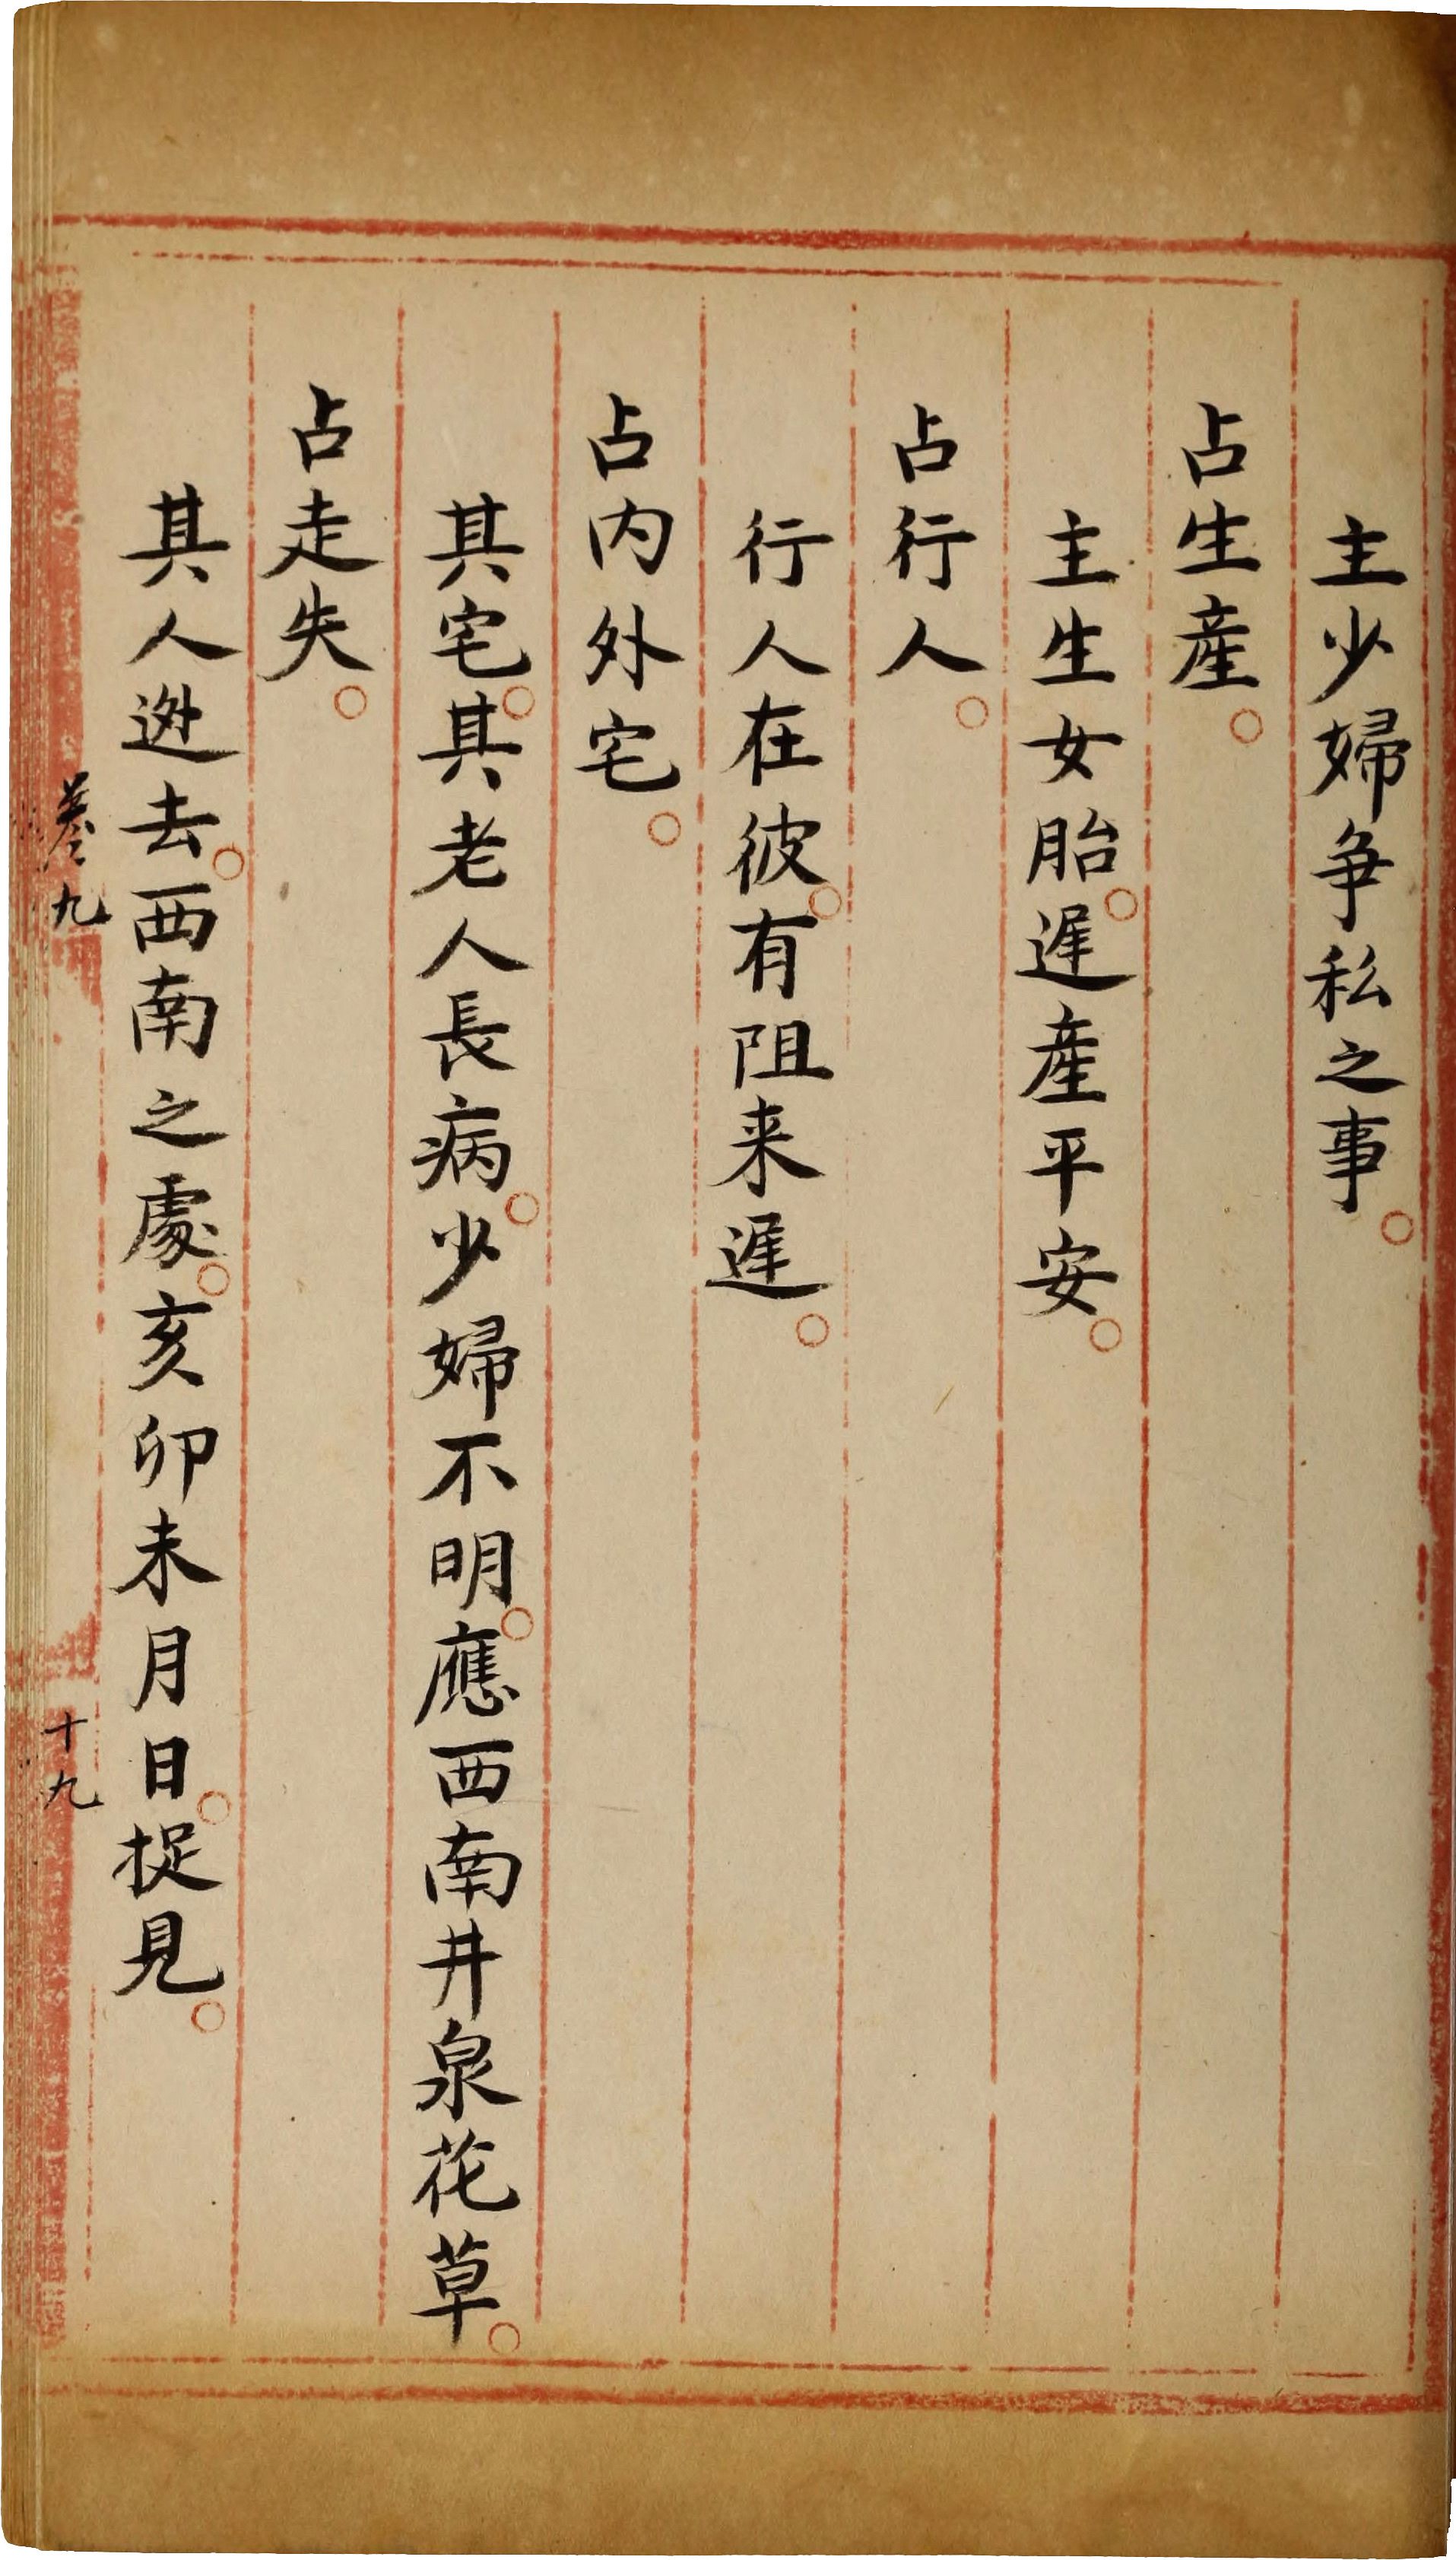 主少婦争私之事○
占生産○
主生女胎○遲産平安○
占行人○
行人在彼○有阻来遲○
占内外宅○
其宅○其老人長病○少婦不明○應西南井泉花草○
占走失○
其人迯去○西南之處○亥卯未月日○捉見○
卷九
十九